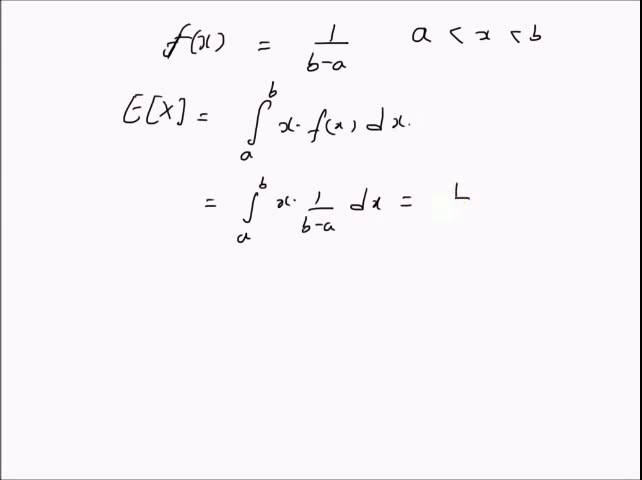 f(x) = 1/(b-a) a < x < b
E[X] = ∫_a^b x. f(x) dx.
= ∫_a^b x. 1/(b-a) dx =